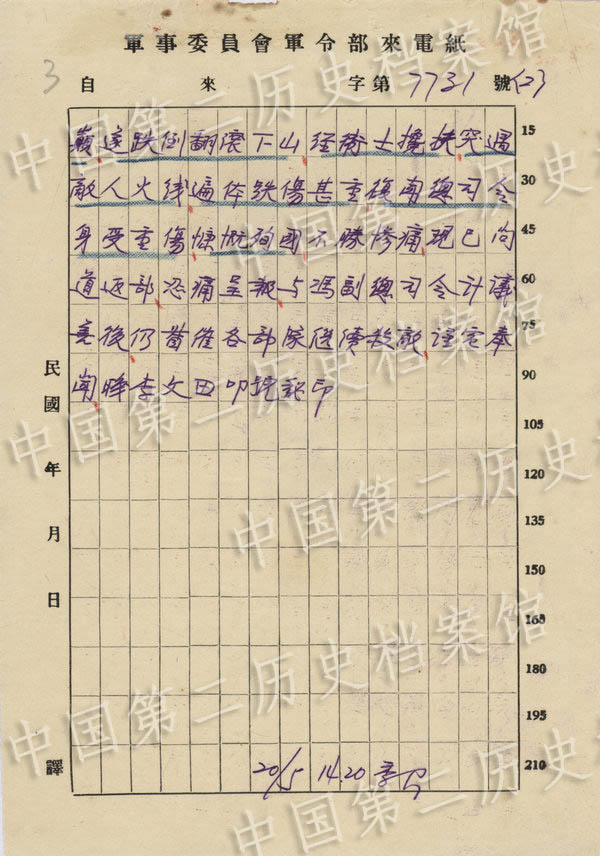 軍事委員會軍令部來電紙
3 自 來 字第 7731 號 (2)
遂跌倒翻滾下山經衛士攙扶突遇 15
敵人火线遍体跌傷甚重後南總司令 30
身受重傷慷慨殉國不勝慘痛現已向 45
道返部恐痛呈報与馮副總司令計議 60
善後仍督催各部隊继續殺敵謹電奉 75
聞 李文田叩 印 90
105
120
135
150
165
180
195
210
民國 年 月 日 譯
20/5 14.20
中国第二历史档案馆
中国第二历史档案馆
中国第二历史档案馆
中国第二历史档案馆
中国第二历史档案馆
中国第二历史档案馆